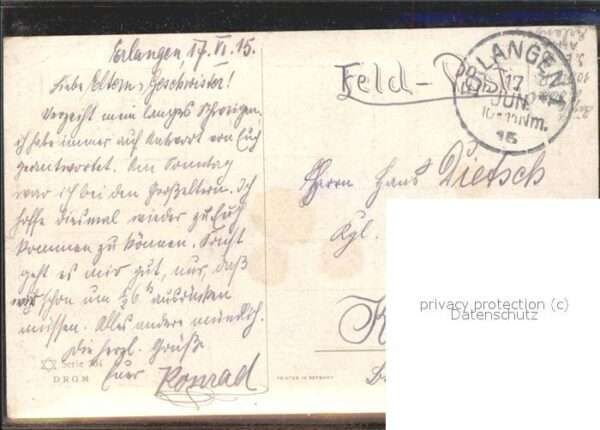 Erlangen, 17. VI. 15.
Liebe Eltern, Geschwister!
Verzeiht mein langes Schweigen.
ich habe immer auf Antwort von Euch
geantwortet. Am Sonntag
war ich bei den Großeltern. Ich
hoffe diesmal wieder zu Euch
kommen zu können. Sonst
geht es mir gut, nur, daß
wir schon um ½6 h ausrücken
müssen. Alles andere mündlich.
Die herzl. Grüße
Euer Konrad
Serie
D.R.G.M.
PRINTED IN GERMANY
Feld-Post
ERLANGEN 1
17
JUN
Nm.
15
Herrn Hans Dietsch
Kgl.
K
privacy protection (c)
Datenschutz